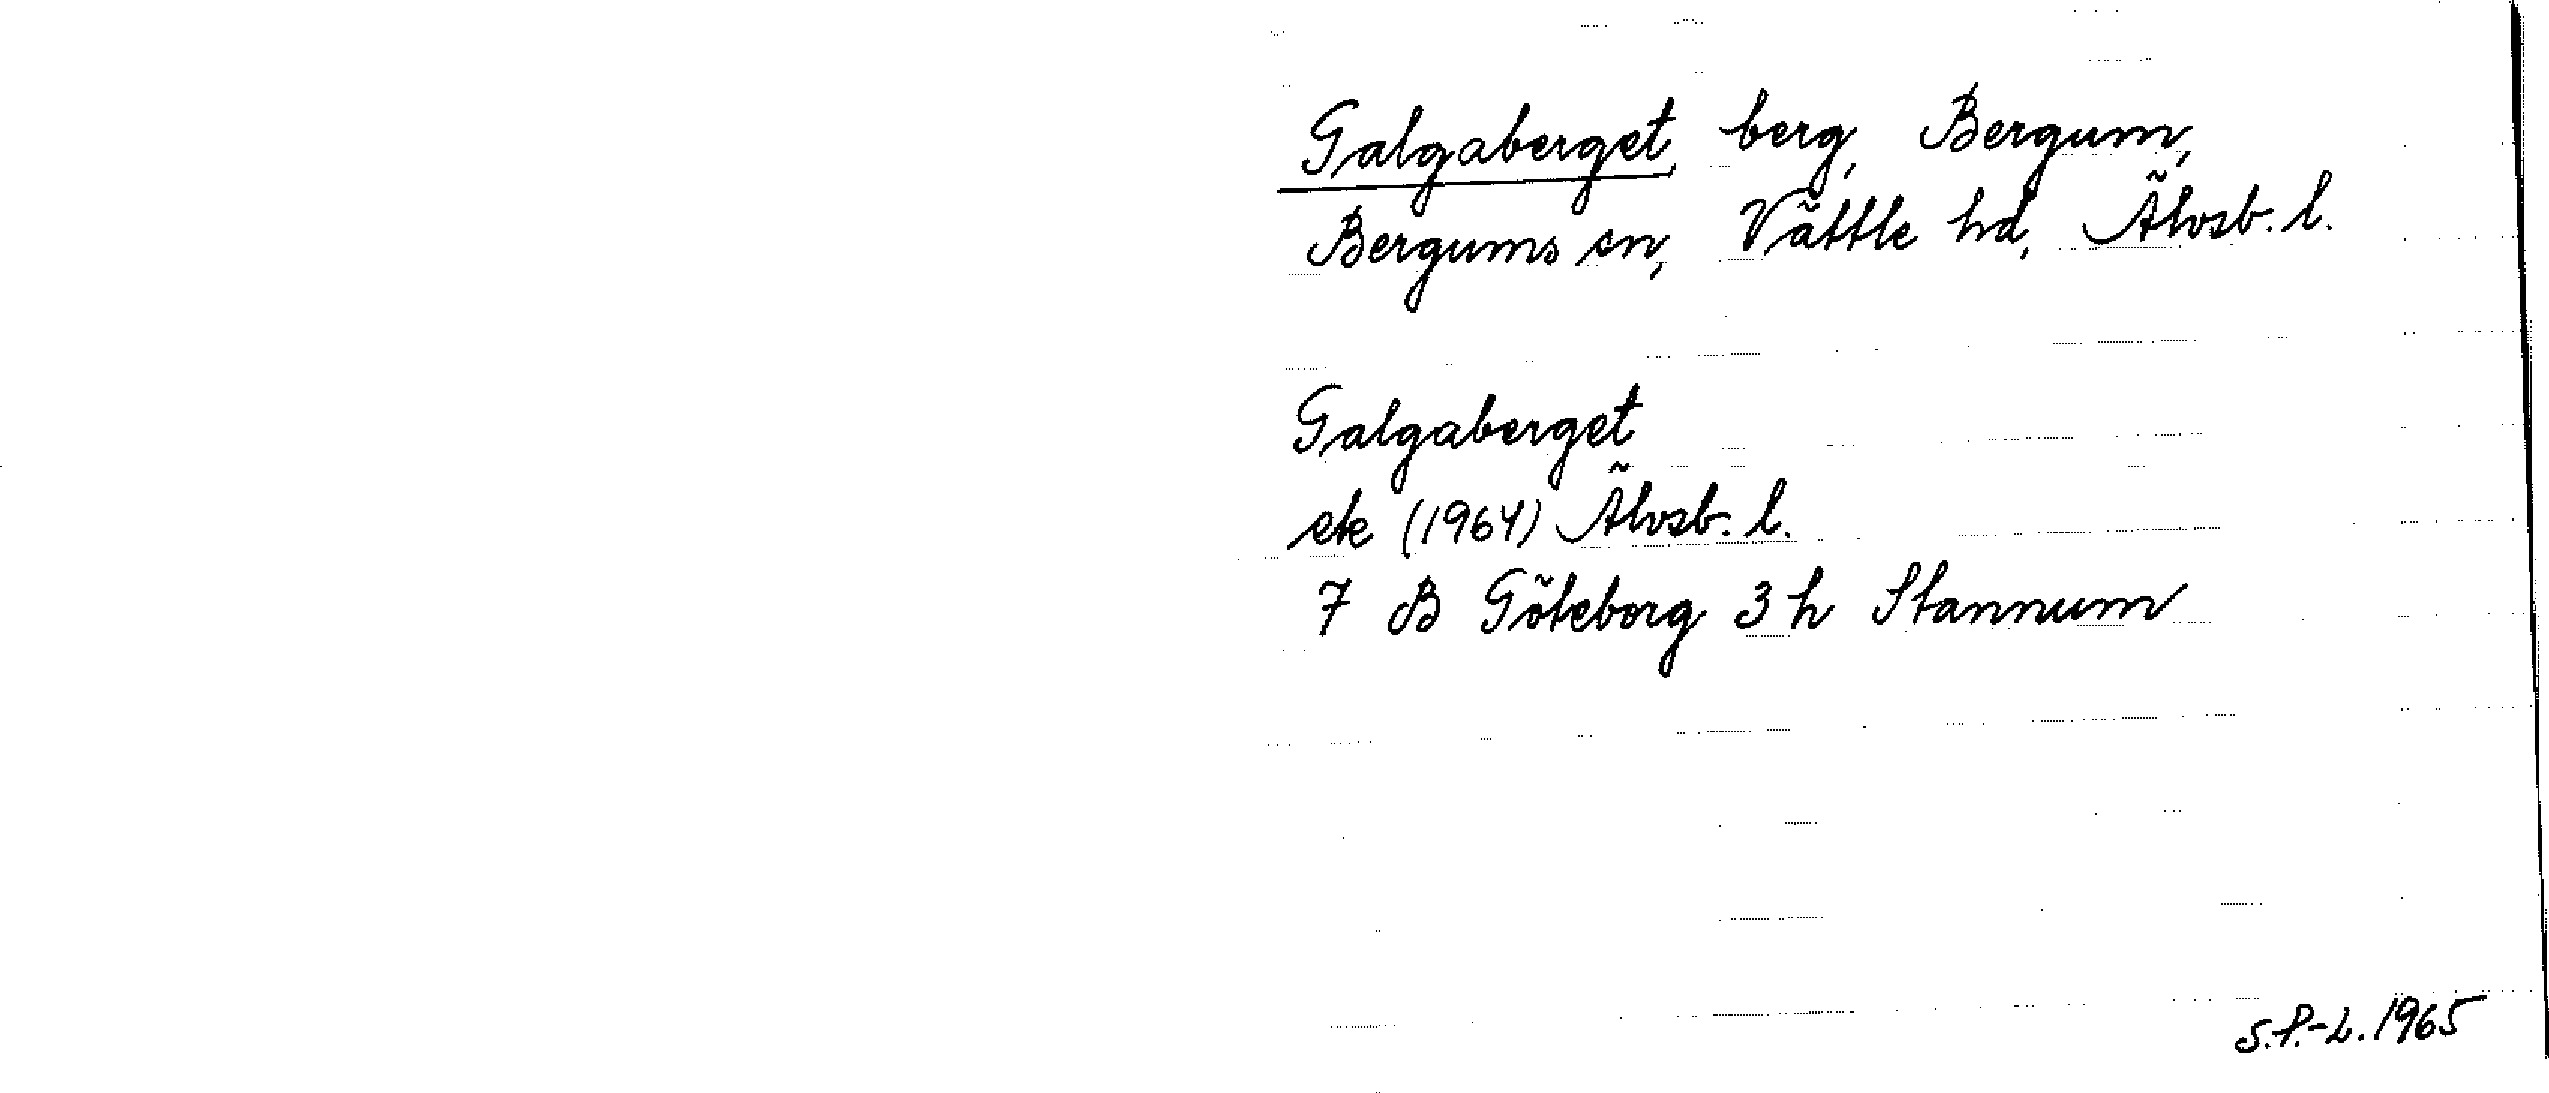 Galgaberget, berg, Bergum,
Bergums sn, Vättle hd, Älvsb. l.
Galgaberget
ek (1964) Älvsb. l.
7 B Göteborg 3 h Stannum
S.P.-L. 1965